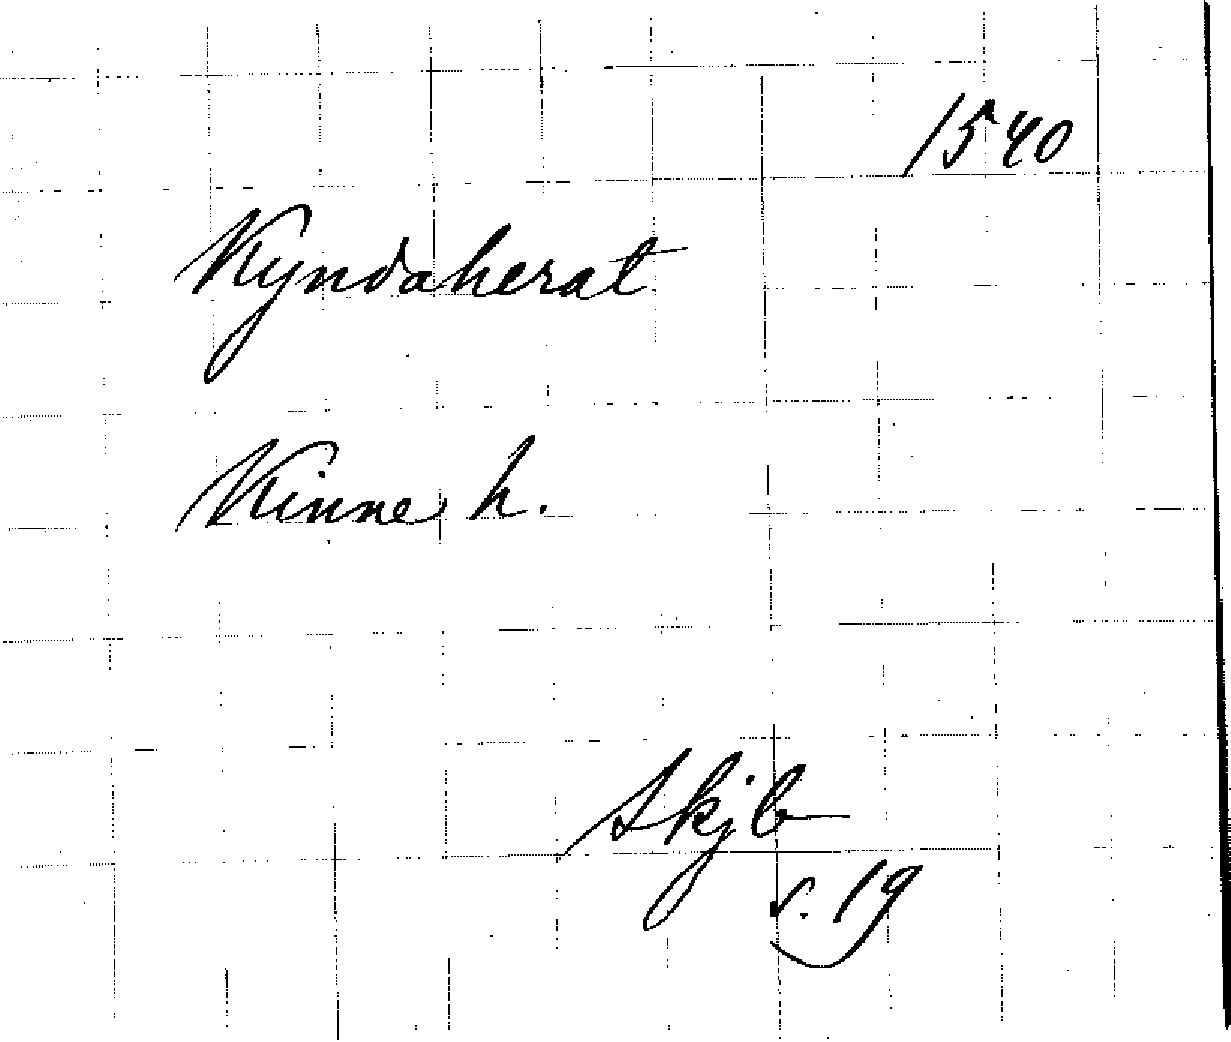 1540
Kyndaherat
Kinne h.
Skjb
s. 19